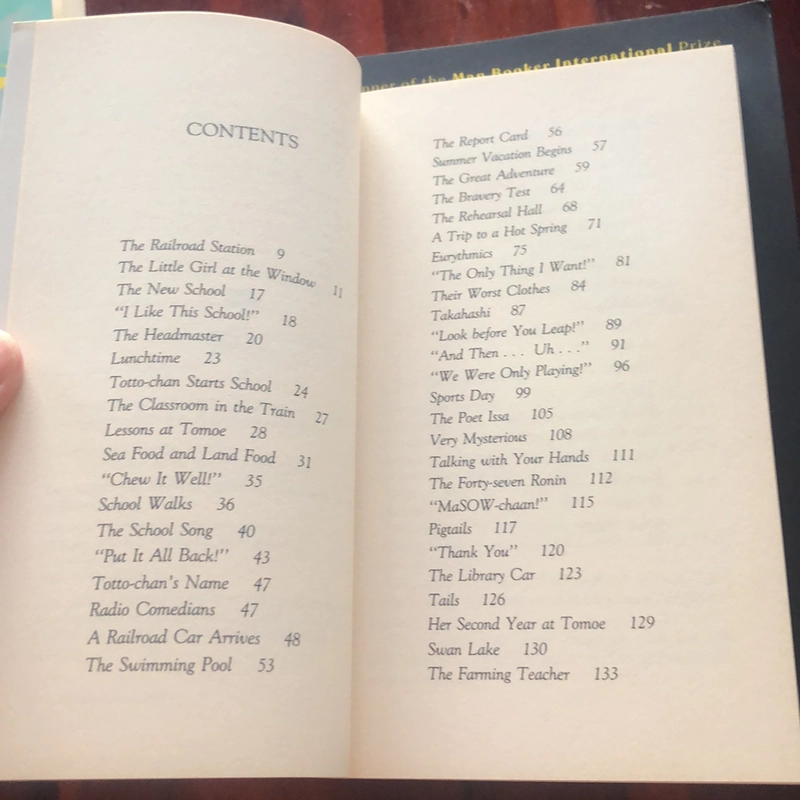 Winner of the Man Booker International Prize
CONTENTS
The Railroad Station 9
The Little Girl at the Window 11
The New School 17
“I Like This School!” 18
The Headmaster 20
Lunchtime 23
Totto-chan Starts School 24
The Classroom in the Train 27
Lessons at Tomoe 28
Sea Food and Land Food 31
“Chew It Well!” 35
School Walks 36
The School Song 40
“Put It All Back!” 43
Totto-chan’s Name 47
Radio Comedians 47
A Railroad Car Arrives 48
The Swimming Pool 53
The Report Card 56
Summer Vacation Begins 57
The Great Adventure 59
The Bravery Test 64
The Rehearsal Hall 68
A Trip to a Hot Spring 71
Eurythmics 75
“The Only Thing I Want!” 81
Their Worst Clothes 84
Takahashi 87
“Look before You Leap!” 89
“And Then . . . Uh . . .” 91
“We Were Only Playing!” 96
Sports Day 99
The Poet Issa 105
Very Mysterious 108
Talking with Your Hands 111
The Forty-seven Ronin 112
“MaSOW-chaan!” 115
Pigtails 117
“Thank You” 120
The Library Car 123
Tails 126
Her Second Year at Tomoe 129
Swan Lake 130
The Farming Teacher 133